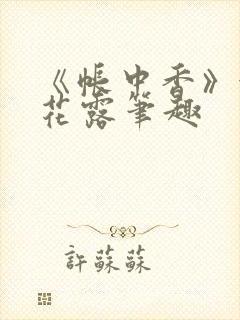 《帳中香》
花露筆趣
許蘇蘇